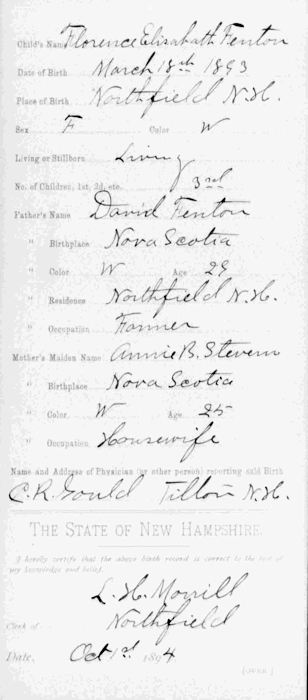 Child's Name Florence Elisabath Fenton
Date of Birth March 18th 1893
Place of Birth Northfield N.H.
Sex F Color W
Living or Stillborn Living
No. of Children, 1st, 2d, etc. 3rd
Father's Name David Fenton
" Birthplace Nova Scotia
" Color W Age 29
" Residence Northfield N.H.
" Occupation Farmer
Mother's Maiden Name Annie B. Stevens
" Birthplace Nova Scotia
" Color W Age 25
" Occupation Housewife
Name and Address of Physician (or other person) reporting said Birth
C. R. Gould Tilton N.H.
THE STATE OF NEW HAMPSHIRE.
I hereby certify that the above birth record is correct to the best of
my knowledge and belief.
L. H. Morrill
Clerk of Northfield
Date, Oct 1st 1894
[OVER.]